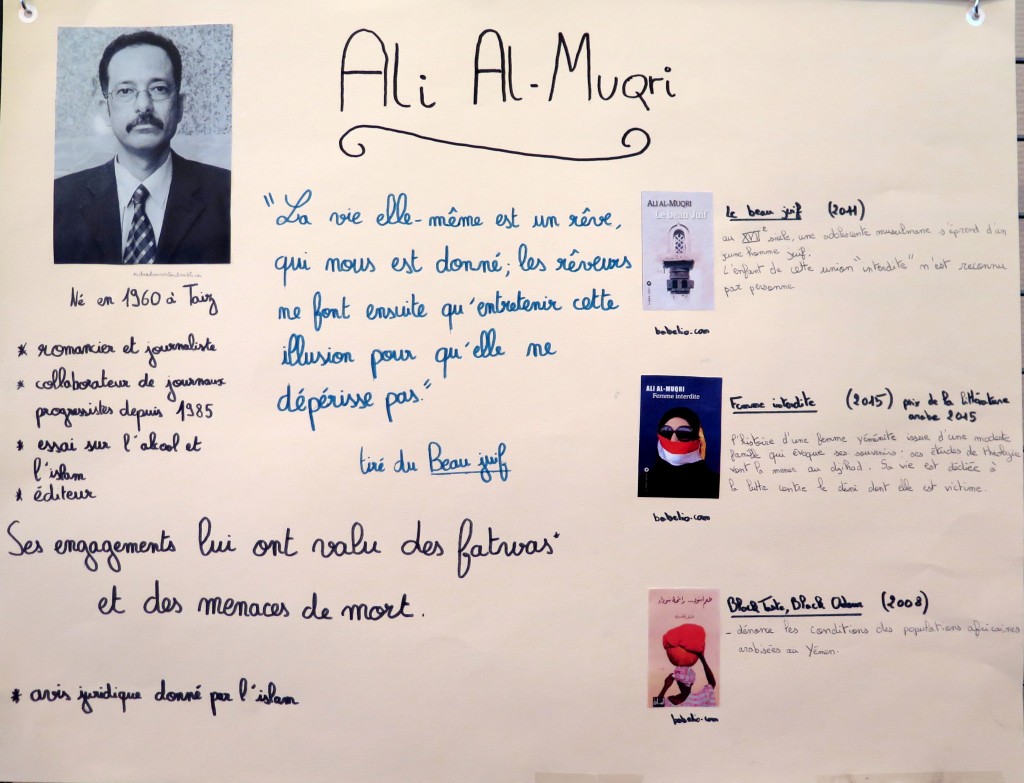 Ali Al-Muqri
Né en 1960 à Taiz
* romancier et journaliste
* collaborateur de journaux
progressistes depuis 1985
* essai sur l'alcool et
l'islam
* éditeur
"La vie elle-même est un rêve,
qui nous est donné; les rêveurs
ne font ensuite qu'entretenir cette
illusion pour qu'elle ne
dépérisse pas."
tiré du Beau juif
Ses engagements lui ont valu des fatwas*
et des menaces de mort.
* avis juridique donné par l'islam
ALI AL-MUQRI
Le beau Juif
babelio.com
Le beau juif (2011)
au XVIe siècle, une adolescente musulmane s'éprend d'un
jeune homme juif.
L'enfant de cette union "interdite" n'est reconnu
par personne
ALI AL-MUQRI
Femme interdite
babelio.com
Femme interdite (2015) prix de la littérature
arabe 2015
l'histoire d'une femme yéménite issue d'une modeste
famille qui évoque ses souvenirs : ses études de théologie
vont la mener au djihad. Sa vie est dédiée à
la lutte contre le déni dont elle est victime.
طعم أسود... رائحة سوداء
babelio.com
Black Taste, Black Odour (2008)
- dénonce les conditions des populations africaines
arabisées au Yémen.